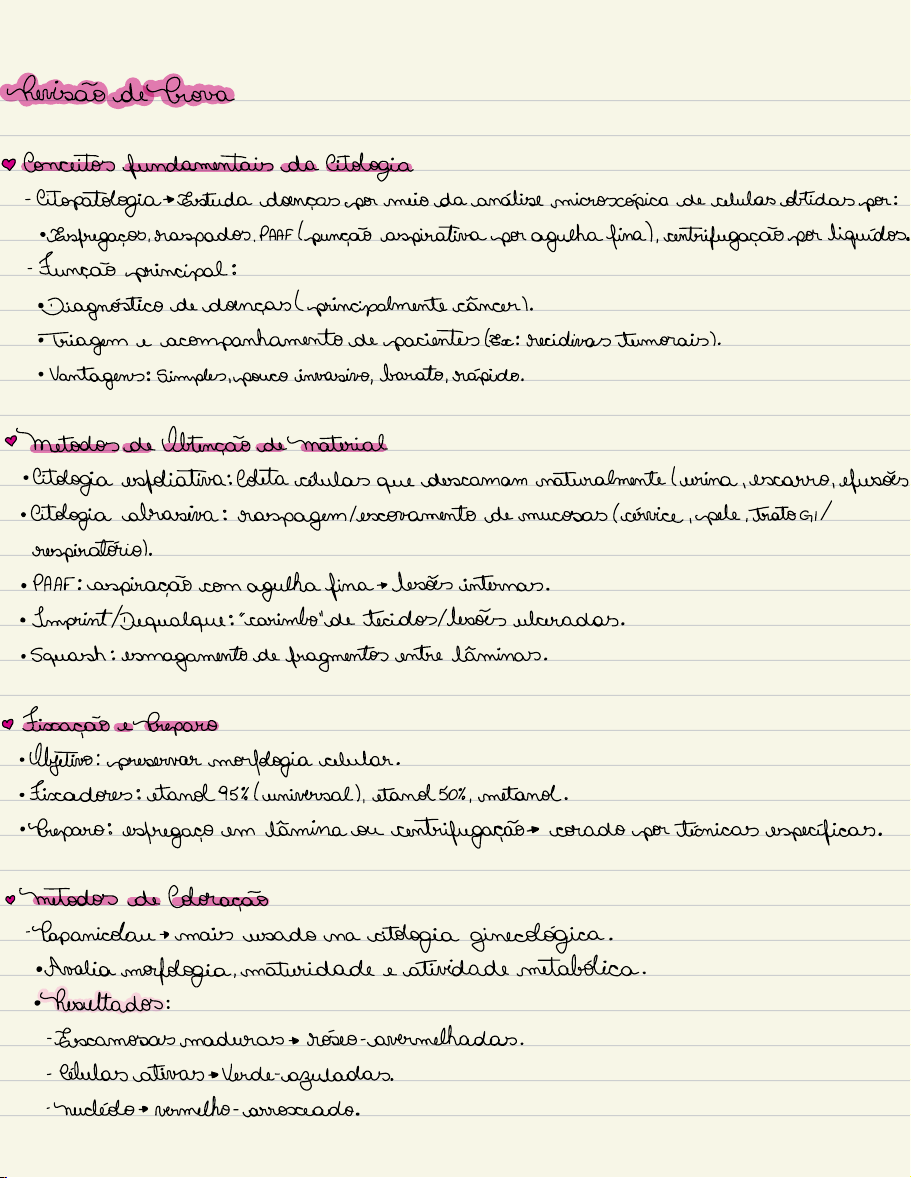 Revisão de Prova
♥ Conceitos fundamentais da Citologia
- Citopatologia → Estuda doenças por meio da análise microscópica de celulas obtidas por:
• Esfregaços, raspados, PAAF (punção aspirativa por agulha fina), centrifugação por liquídos.
- Função principal:
• Diagnóstico de doenças (principalmente câncer).
• Triagem e acompanhamento de pacientes (Ex: recidivas tumorais).
• Vantagens: Simples, pouco invasivo, barato, rápido.
♥ Metodos de Obtenção de material
• Citologia esfoliativa: Coleta células que descamam naturalmente (urina, escarro, efusões
• Citologia abrasiva: raspagem/escovamento de mucosas (cérvice, pele, Trato GI/
respiratório).
• PAAF: aspiração com agulha fina → lesões internas.
• Imprint/Dequalque: "carimbo" de tecidos/lesões ulceradas.
• Squash: esmagamento de fragmentos entre lâminas.
♥ Fixação e Preparo
• Objetivo: preservar morfologia celular.
• Fixadores: etanol 95% (universal), etanol 50%, metanol.
• Preparo: esfregaço em lâmina ou centrifugação → corado por técnicas específicas.
♥ Metodos de Coloração
- Papanicolau → mais usado na citologia ginecológica.
• Avalia morfologia, maturidade e atividade metabólica.
• Resultados:
- Escamosas maduras → róseo-avermelhadas.
- Células ativas → Verde-azuladas.
- nucléolo → vermelho-arroxeado.